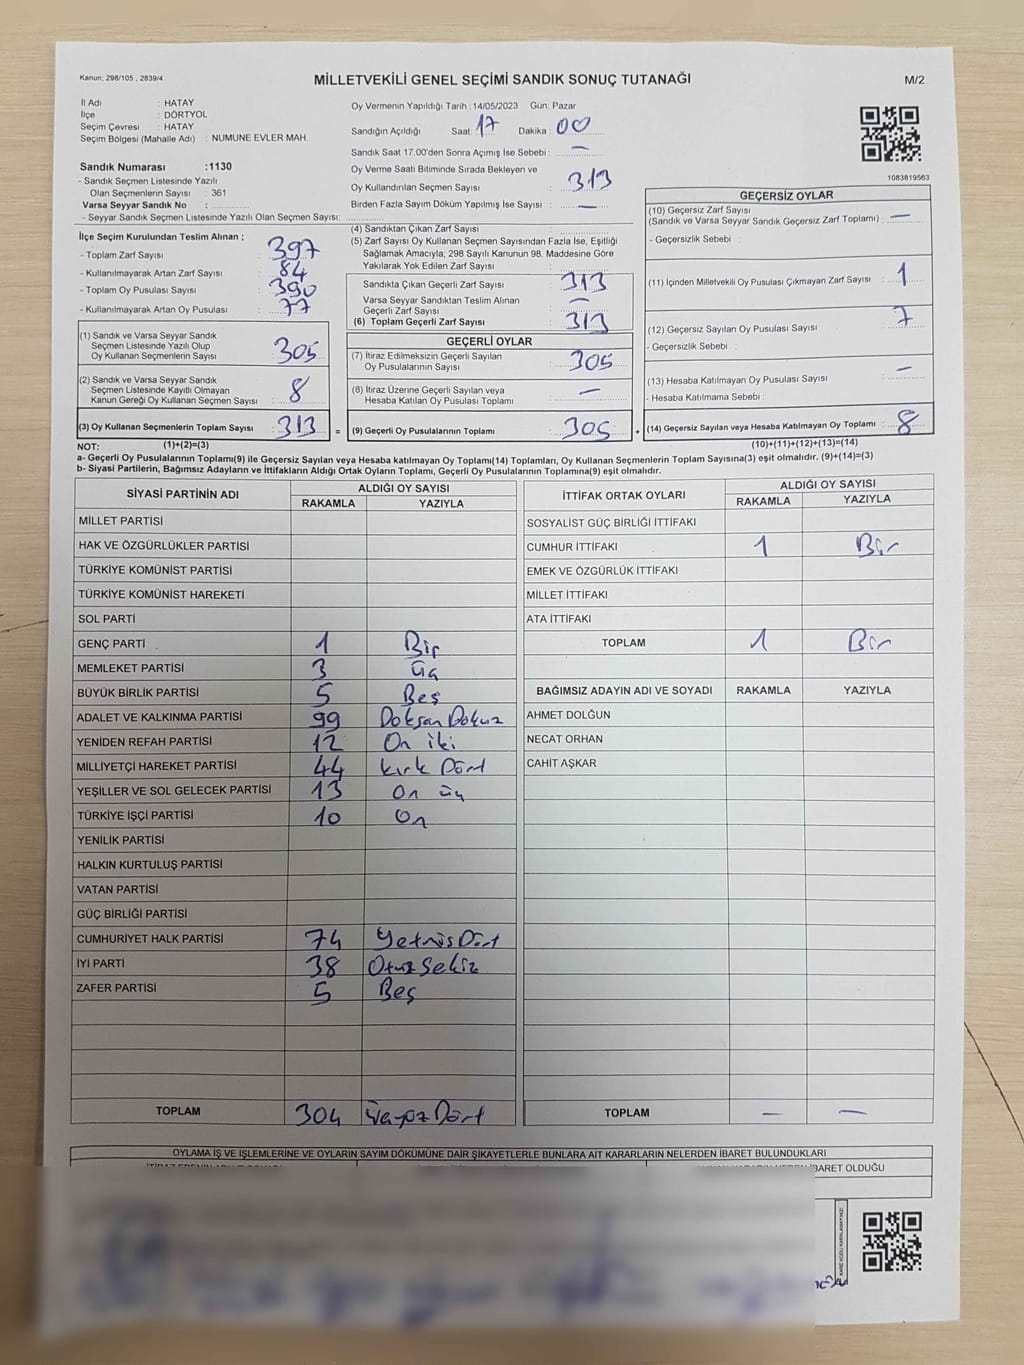 Kanun; 298/105 , 2839/4
MİLLETVEKİLİ GENEL SEÇİMİ SANDIK SONUÇ TUTANAĞI
M/2
İl Adı : HATAY
İlçe : DÖRTYOL
Seçim Çevresi : HATAY
Seçim Bölgesi (Mahalle Adı) : NUMUNE EVLER MAH.
Sandık Numarası :1130
- Sandık Seçmen Listesinde Yazılı
Olan Seçmenlerin Sayısı : 361
Varsa Seyyar Sandık No :
- Seyyar Sandık Seçmen Listesinde Yazılı Olan Seçmen Sayısı:
Oy Vermenin Yapıldığı Tarih :14/05/2023 Gün: Pazar
Sandığın Açıldığı Saat: 17 Dakika : 00
Sandık Saat 17:00'den Sonra Açımış İse Sebebi : —
Oy Verme Saati Bitiminde Sırada Bekleyen ve
Oy Kullandırılan Seçmen Sayısı : 313
Birden Fazla Sayım Döküm Yapılmış İse Sayısı : —
1083819563
İlçe Seçim Kurulundan Teslim Alınan ;
- Toplam Zarf Sayısı : 397
- Kullanılmayarak Artan Zarf Sayısı : 84
- Toplam Oy Pusulası Sayısı : 390
- Kullanılmayarak Artan Oy Pusulası : 77
(1) Sandık ve Varsa Seyyar Sandık
Seçmen Listesinde Yazılı Olup
Oy Kullanan Seçmenlerin Sayısı : 305
(2) Sandık ve Varsa Seyyar Sandık
Seçmen Listesinde Kayıtlı Olmayan
Kanun Gereği Oy Kullanan Seçmen Sayısı : 8
(3) Oy Kullanan Seçmenlerin Toplam Sayısı : 313 =
(4) Sandıktan Çıkan Zarf Sayısı :
(5) Zarf Sayısı Oy Kullanan Seçmen Sayısından Fazla İse, Eşitliği
Sağlamak Amacıyla; 298 Sayılı Kanunun 98. Maddesine Göre
Yakılarak Yok Edilen Zarf Sayısı :
Sandıkta Çıkan Geçerli Zarf Sayısı : 313
Varsa Seyyar Sandıktan Teslim Alınan
Geçerli Zarf Sayısı : —
(6) Toplam Geçerli Zarf Sayısı : 313
GEÇERLİ OYLAR
(7) İtiraz Edilmeksizin Geçerli Sayılan
Oy Pusulalarının Sayısı : 305
(8) İtiraz Üzerine Geçerli Sayılan veya
Hesaba Katılan Oy Pusulası Toplamı : —
(9) Geçerli Oy Pusulalarının Toplamı : 305 +
GEÇERSİZ OYLAR
(10) Geçersiz Zarf Sayısı
(Sandık ve Varsa Seyyar Sandık Geçersiz Zarf Toplamı) : —
- Geçersizlik Sebebi :
(11) İçinden Milletvekili Oy Pusulası Çıkmayan Zarf Sayısı : 1
(12) Geçersiz Sayılan Oy Pusulası Sayısı : 7
- Geçersizlik Sebebi :
(13) Hesaba Katılmayan Oy Pusulası Sayısı : —
- Hesaba Katılmama Sebebi :
(14) Geçersiz Sayılan veya Hesaba Katılmayan Oy Toplamı : 8
NOT: (1)+(2)=(3) (10)+(11)+(12)+(13)=(14)
a- Geçerli Oy Pusulalarının Toplamı(9) ile Geçersiz Sayılan veya Hesaba Katılmayan Oy Toplamı(14) Toplamları, Oy Kullanan Seçmenlerin Toplam Sayısına(3) eşit olmalıdır. (9)+(14)=(3)
b- Siyasi Partilerin, Bağımsız Adayların ve İttifakların Aldığı Ortak Oyların Toplamı, Geçerli Oy Pusulalarının Toplamına(9) eşit olmalıdır.
SİYASİ PARTİNİN ADI ALDIĞI OY SAYISI
RAKAMLA YAZIYLA
MİLLET PARTİSİ
HAK VE ÖZGÜRLÜKLER PARTİSİ
TÜRKİYE KOMÜNİST PARTİSİ
TÜRKİYE KOMÜNİST HAREKETİ
SOL PARTİ
GENÇ PARTİ 1 Bir
MEMLEKET PARTİSİ 3 üç
BÜYÜK BİRLİK PARTİSİ 5 Beş
ADALET VE KALKINMA PARTİSİ 99 Doksan Dokuz
YENİDEN REFAH PARTİSİ 12 On iki
MİLLİYETÇİ HAREKET PARTİSİ 44 kırk Dört
YEŞİLLER VE SOL GELECEK PARTİSİ 13 On üç
TÜRKİYE İŞÇİ PARTİSİ 10 On
YENİLİK PARTİSİ
HALKIN KURTULUŞ PARTİSİ
VATAN PARTİSİ
GÜÇ BİRLİĞİ PARTİSİ
CUMHURİYET HALK PARTİSİ 74 Yetmiş Dört
İYİ PARTİ 38 Otuz Sekiz
ZAFER PARTİSİ 5 Beş
TOPLAM 304 üçyüz Dört
İTTİFAK ORTAK OYLARI ALDIĞI OY SAYISI
RAKAMLA YAZIYLA
SOSYALİST GÜÇ BİRLİĞİ İTTİFAKI
CUMHUR İTTİFAKI 1 Bir
EMEK VE ÖZGÜRLÜK İTTİFAKI
MİLLET İTTİFAKI
ATA İTTİFAKI
TOPLAM 1 Bir
BAĞIMSIZ ADAYIN ADI VE SOYADI RAKAMLA YAZIYLA
AHMET DOLĞUN
NECAT ORHAN
CAHİT AŞKAR
TOPLAM — —
OYLAMA İŞ VE İŞLEMLERİNE VE OYLARIN SAYIM DÖKÜMÜNE DAİR ŞİKAYETLERLE BUNLARA AİT KARARLARIN NELERDEN İBARET BULUNDUKLARI
OLDUĞU